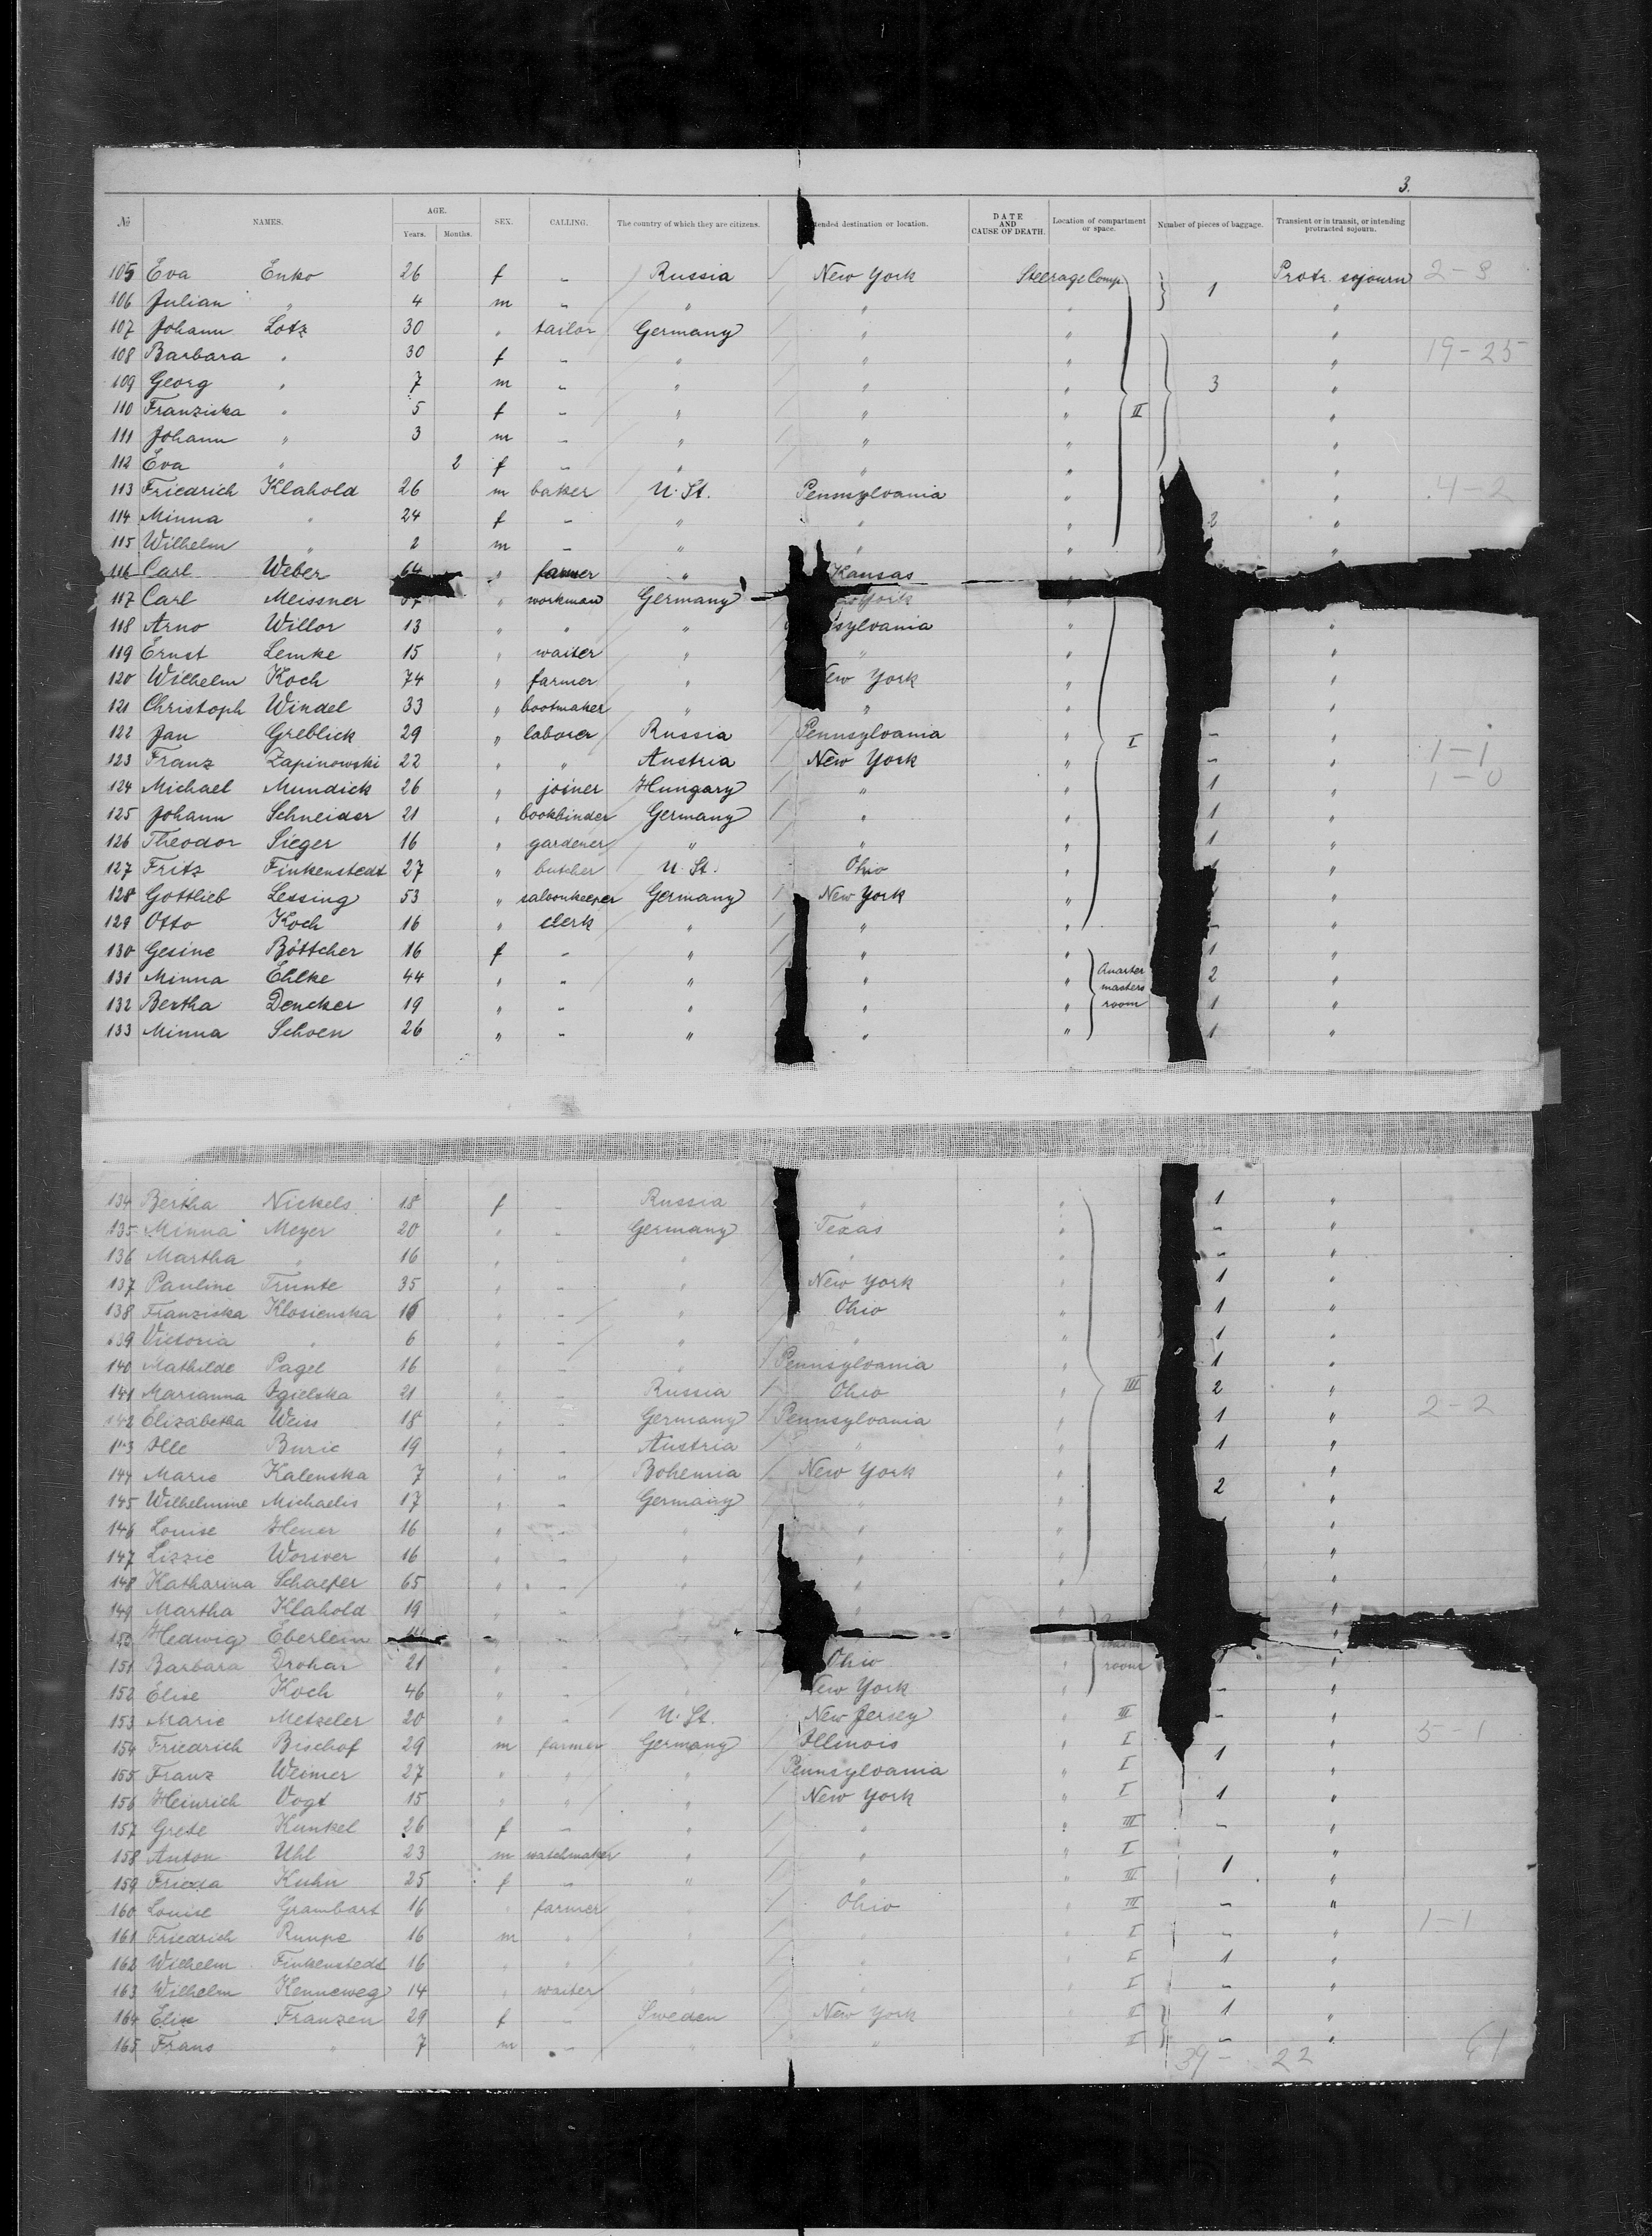 3.
№ NAMES. AGE. Years. Months. SEX. CALLING. The country of which they are citizens. tended destination or location. DATE AND CAUSE OF DEATH. Location of compartment or space. Number of pieces of baggage. Transient or in transit, or intending protracted sojourn.
105 Eva Enko 26 f - Russia New York Steerage Comp 1 Protr. sojourn
106 Julian " 4 m - " " " "
107 Johann Lotz 30 " tailor Germany " " "
108 Barbara " 30 f - " " " " 19-25
109 Georg " 7 m - " " " 3 "
110 Franziska " 5 f - " " " II "
111 Johann " 3 m - " " " "
112 Eva " 2 f - " " " "
113 Friedrich Klahold 26 m baker U. St. Pennsylvania " " 4-2
114 Minna " 24 f - " " " 2 "
115 Wilhelm " 2 m - " " " "
116 Carl Weber 64 " farmer " Kansas
117 Carl Meissner " workman Germany York
118 Arno Willor 13 " " " sylvania " "
119 Ernst Lemke 15 " waiter " " " "
120 Wilhelm Koch 74 " farmer " ew York " "
121 Christoph Windel 33 " bootmaker " " " "
122 Jan Greblick 29 " laborer Russia Pennsylvania " I - "
123 Franz Zapinowski 22 " " Austria New York " - " 1-1
124 Michael Mundick 26 " joiner Hungary " " 1 " 1-0
125 Johann Schneider 21 " bookbinder Germany " " 1 "
126 Theodor Sieger 16 " gardener " " " 1 "
127 Fritz Finkenstedt 27 " butcher U. St. Ohio " 1 "
128 Gottlieb Lessing 53 " saloonkeeper Germany New York " "
129 Otto Koch 16 " clerk " " " - "
130 Gesine Böttcher 16 f - " " " 1 "
131 Minna Ehlke 44 " - " " " Quarter masters room 2 "
132 Bertha Dencker 19 " - " " " 1 "
133 Minna Schoen 26 " - " " " 1 "
134 Bertha Nickels 18 f - Russia " " 1 "
135 Minna Meyer 20 " - Germany Texas " - "
136 Martha " 16 " - " " " - "
137 Pauline Trunte 35 " - " New York " 1 "
138 Franziska Klosienska 16 " - " Ohio " 1 "
139 Victoria " 6 " - " " " 1 "
140 Mathilde Pagel 16 " - " Pennsylvania " 1 "
141 Marianna Igielska 21 " - Russia Ohio " III 2 "
142 Elizabetha Weiss 18 " - Germany Pennsylvania " 1 " 2-2
143 Ille Buric 19 " - Austria " " 1 "
144 Marie Kalenska 7 " - Bohemia New York " "
145 Wilhelmine Michaelis 17 " - Germany " " 2 "
146 Louise Heuer 16 " - " " " "
147 Lizzie Worwer 16 " - " " " "
148 Katharina Schaefer 65 " - " " " "
149 Martha Klahold 19 " - " " " "
150 Hedwig Eberlein "
151 Barbara Drohar 21 " - " Ohio " room "
152 Elise Koch 46 " - " New York " - "
153 Marie Metzeler 20 " - U. St. New Jersey " III - "
154 Friedrich Bischof 29 m farmer Germany Illinois " I 1 " 5-1
155 Franz Weimer 27 " " " Pennsylvania " I "
156 Heinrich Vogt 15 " " " New York " I 1 "
157 Grete Kunkel 26 f - " " " III - "
158 Anton Uhl 23 m watchmaker " " " I "
159 Frieda Kuhn 25 f - " " " III 1 "
160 Louise Grambart 16 " farmer " Ohio " III - "
161 Friedrich Rumpe 16 m " " " " I - " 1-1
162 Wilhelm Finkenstedt 16 " " " " " I 1 "
163 Wilhelm Kenneweg 14 " waiter " " " I - "
164 Elise Franzen 29 f - Sweden New York " II 1 "
165 Frans " 7 m - " " " II - "
39- 22 61